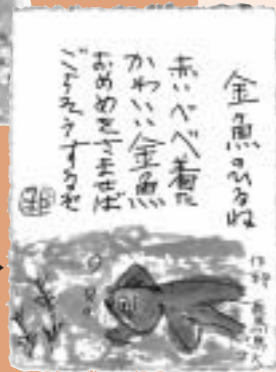 金魚のひるね
赤いべべ着た
かわいい金魚
おめめをさませば
ごちそうするぞ
作詞